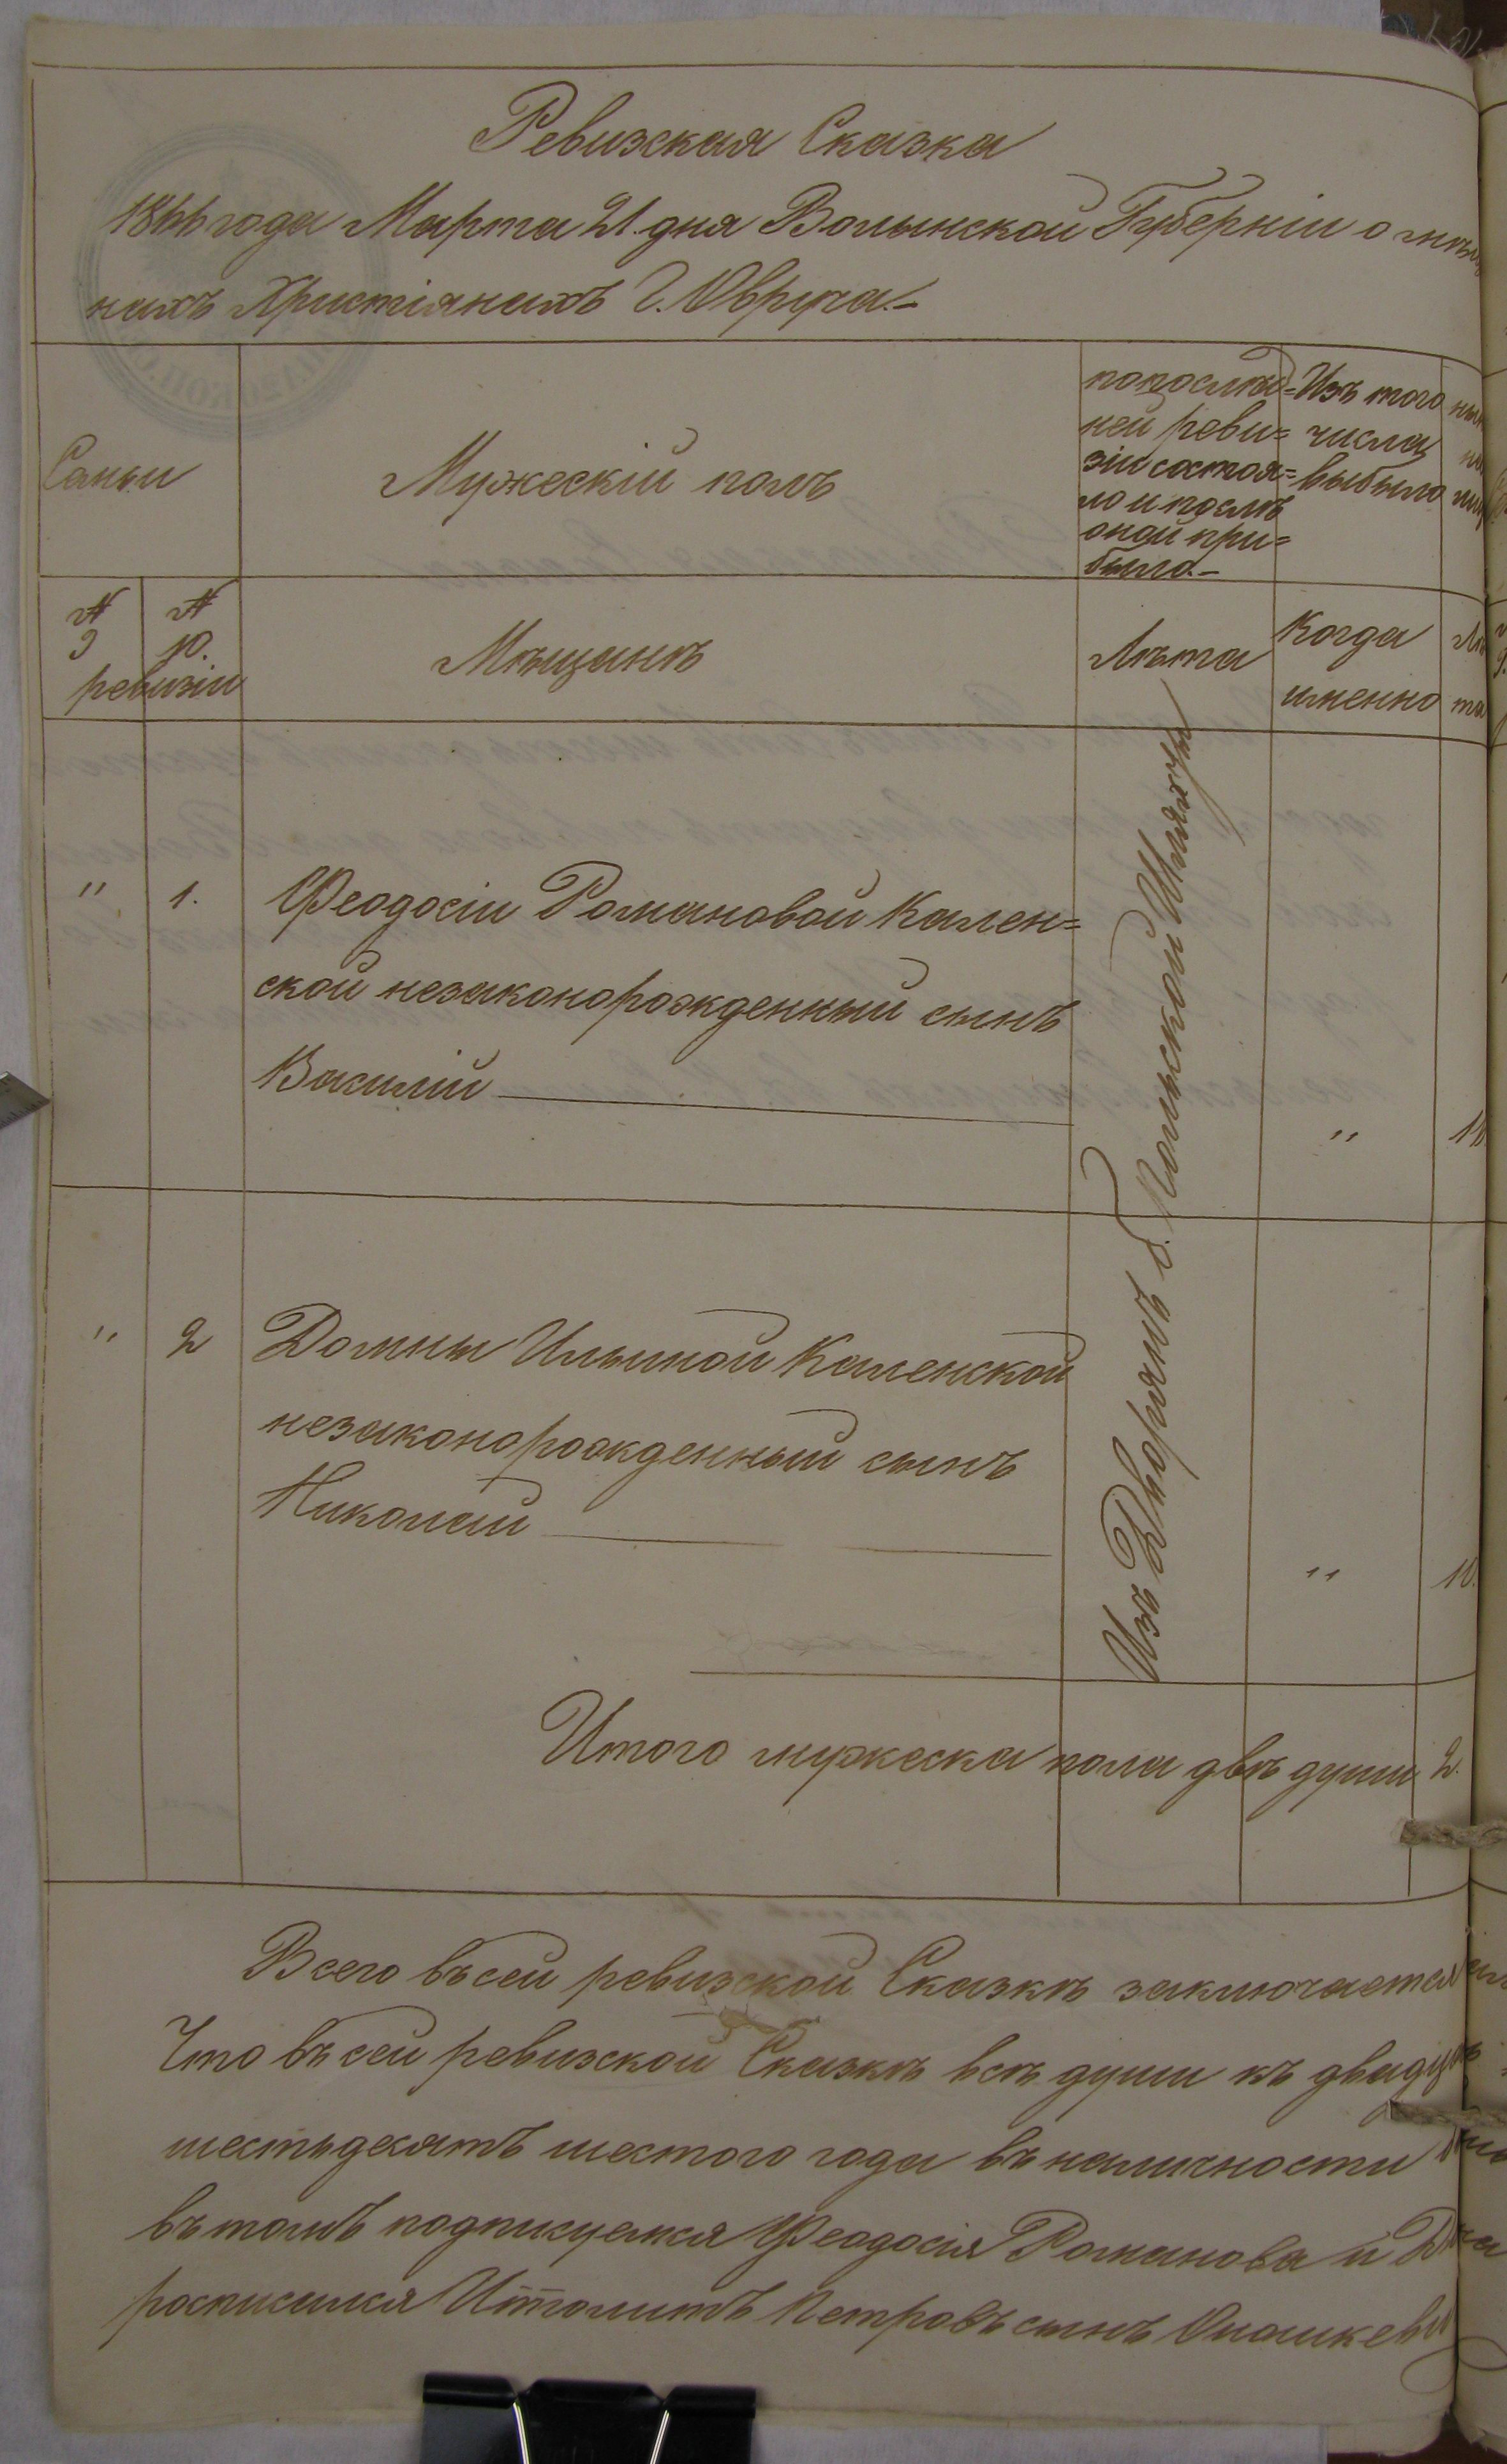 Ревизская Сказка
1866 года Марта 21. дня Волынской Губерніи о мѣщ
нахъ Христіянахъ г. Овруча.-
Мужескій полъ
попослѣд=
ней реви=
зіи состоя=
ло и послѣ
оной при=
было.-
Изъ того
числа
выбыло
№ №
9 10.
ревизіи
Мѣщанъ
Лѣта
Когда
именно
Лѣ
та
" 1.
Феодосіи Романовой Кален=
ской незаконорожденный сынъ
Василій
"
" 2
Домны Ильиной Каленской
незаконорожденный сынъ
Николай
" 10.
Изъ Дворянъ б. Польской Шляхты
Итого мужеска пола двѣ души 2.
Всего въ сей ревизской Сказкѣ заключается
Что въ сей ревизской Сказкѣ всѣ души къ двадц
шестьдесятъ шестого года въ наличности
въ томъ подписуемся Феодосія Романова и
росписался Иполитъ Петровъ сынъ